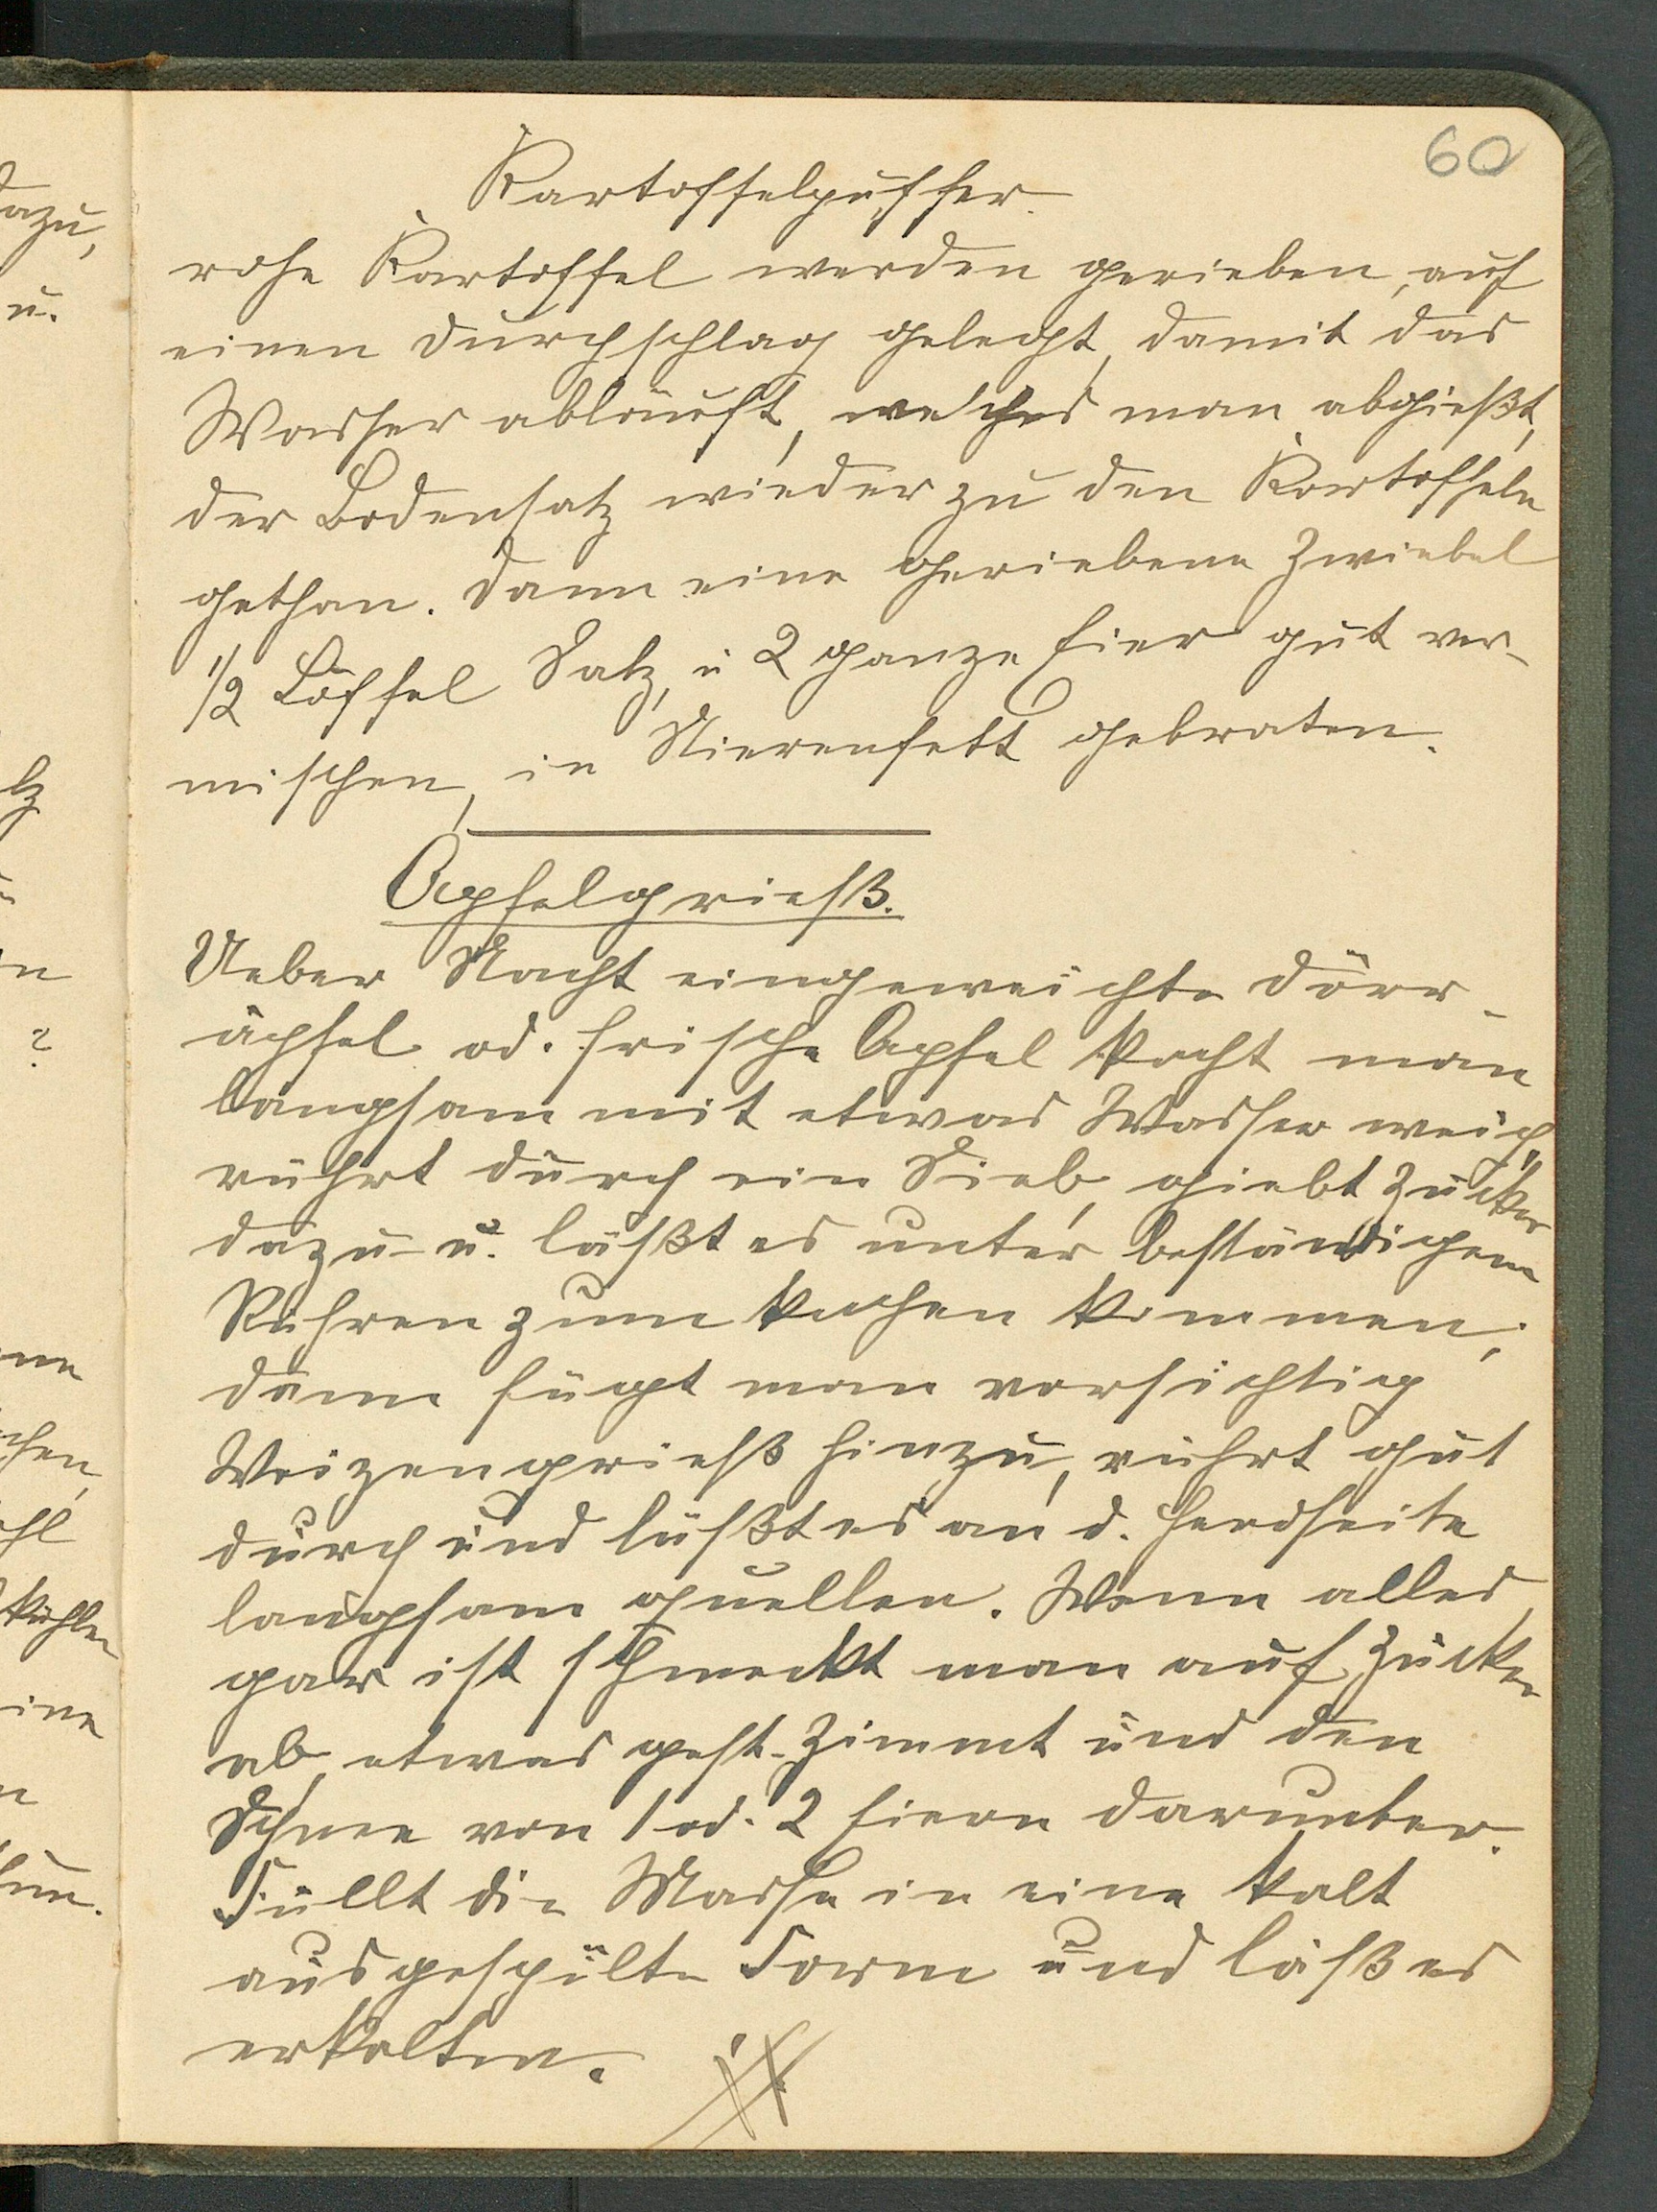 60
Kartoffelpuffer.
rohe Kartoffel werden gerieben, auf
einen Durchschlag gelegt, damit das
Wasser abläuft, welches man abgießt,
der Bodensatz wieder zu den Kartoffeln
gethan. Dann eine geriebene Zwiebel
1/2 Löffel Salz, u 2 ganze Eier gut ver-
mischen, in Nierenfett gebraten.
Apfelgrieß.
Ueber Nacht eingeweichte Dörr-
äpfel od. frische Apfel kocht man
langsam mit etwas Wasser weich,
rührt durch ein Sieb, giebt Zucker
dazu u. läßt es unter beständigem
Rühren zum kochen kommen;
dann fügt man vorsichtig
Weizengrieß hinzu, rührt gut
durch und läßt es an d. Herdseite
langsam quellen. Wenn alles
gar ist schmeckt man auf Zucker
ab, etwas gest. Zimmt und den
Schnee von 1 od. 2 Eiern darunter.
Füllt die Masse in eine kalt
ausgespülte Form und läß es
erkalten.
azu,
u.
lz
in
?
chen,
hl
kühlen
ine